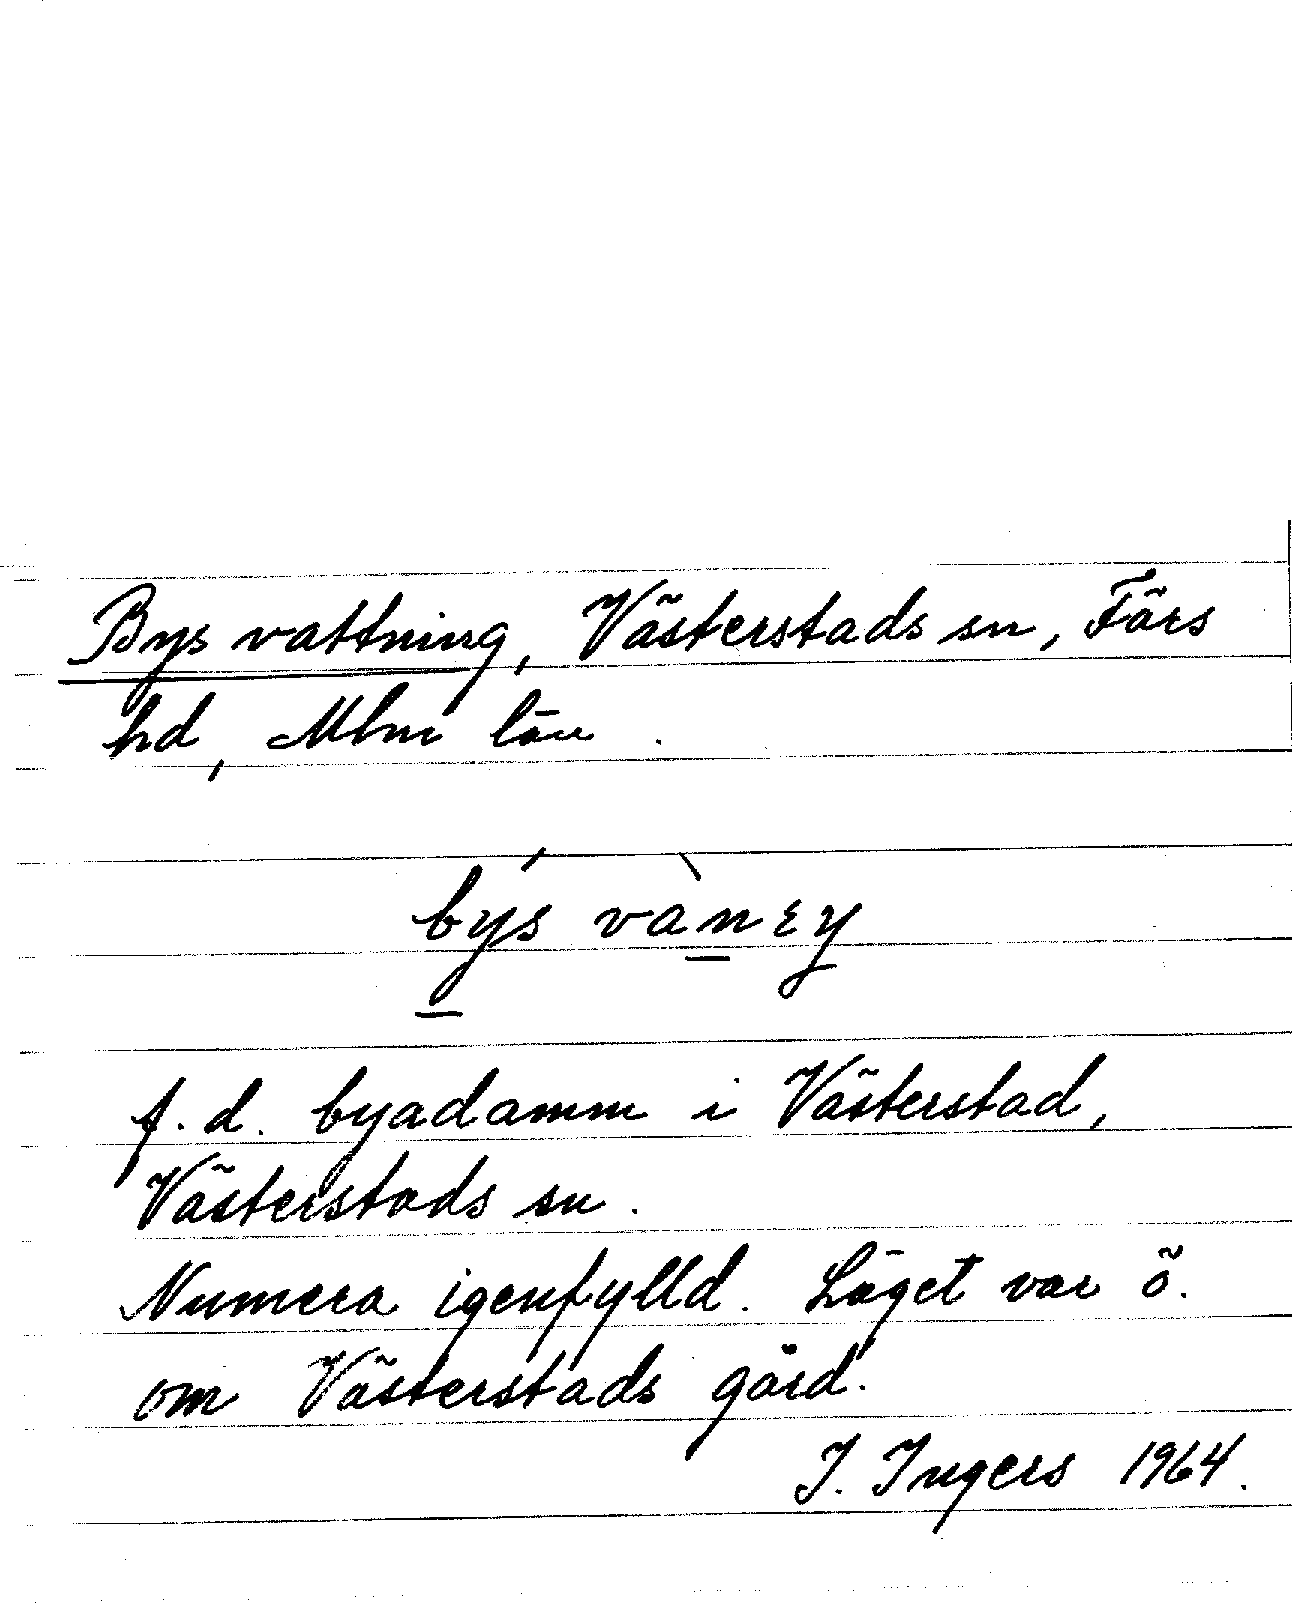 Bys vattning, Västerstads sn, Färs
hd, Mlm län.
býs vànɛŋ
f.d. byadamm i Västerstad,
Västerstads sn.
Numera igenfylld. Läget var ö.
om Västerstads gård.
I. Ingers 1964.